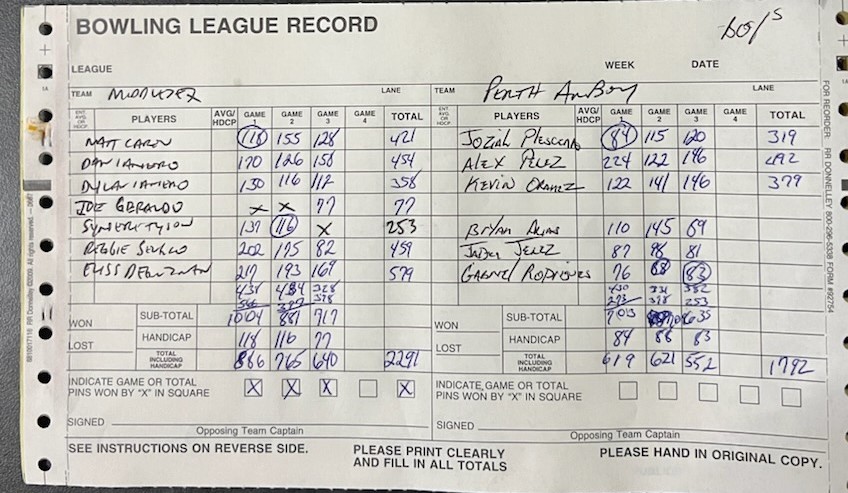 BOWLING LEAGUE RECORD
boys
LEAGUE WEEK DATE
TEAM MIDDLESEX LANE TEAM PERTH AMBOY LANE
ENT. AVG. OR HDCP. PLAYERS AVG/HDCP GAME 1 GAME 2 GAME 3 GAME 4 TOTAL ENT. AVG. OR HDCP. PLAYERS AVG/HDCP GAME 1 GAME 2 GAME 3 GAME 4 TOTAL
MATT 118 155 128 421 84 115 120 319
170 126 158 454 ALEX PEREZ 224 122 146 492
DYLAN 130 116 112 358 KEVIN 122 141 146 379
JOE GERALDO X X 77 77
137 116 X 253 BRYAN ARIAS 110 145 69
REGGIE 202 175 82 459 87 98 81
217 193 169 579 GABRIEL RODRIGUES 76 88 83
438 328 430 331 352
273 328 253
SUB-TOTAL 1004 881 717 SUB-TOTAL 703 635
WON WON
HANDICAP 118 116 77 HANDICAP 84 88 83
LOST LOST
TOTAL INCLUDING HANDICAP 886 765 640 2291 TOTAL INCLUDING HANDICAP 619 621 552 1792
INDICATE GAME OR TOTAL PINS WON BY "X" IN SQUARE X X X X INDICATE GAME OR TOTAL PINS WON BY "X" IN SQUARE
SIGNED SIGNED
Opposing Team Captain Opposing Team Captain
SEE INSTRUCTIONS ON REVERSE SIDE. PLEASE PRINT CLEARLY AND FILL IN ALL TOTALS PLEASE HAND IN ORIGINAL COPY.
FOR REORDER: RR DONNELLEY 800-296-5338 FORM #92754